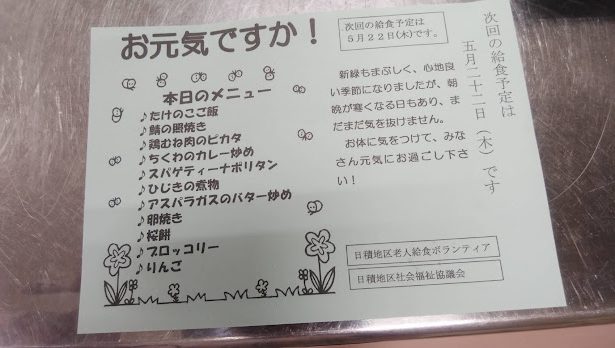 お元気ですか!
次回の給食予定は
5月22日(木)です。
次回の給食予定は
五月二十二日(木)です
本日のメニュー
♪たけのこご飯
♪鯖の照焼き
♪鶏むね肉のピカタ
♪ちくわのカレー炒め
♪スパゲティーナポリタン
♪ひじきの煮物
♪アスパラガスのバター炒め
♪卵焼き
♪桜餅
♪ブロッコリー
♪りんご
新緑もまぶしく、心地良
い季節になりましたが、朝
晩が寒くなる日もあり、ま
だまだ気を抜けません。
お体に気をつけて、みな
さん元気にお過ごし下さ
い!
日積地区老人給食ボランティア
日積地区社会福祉協議会